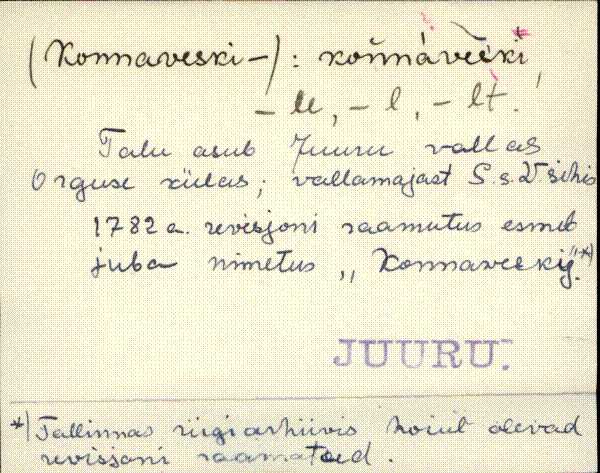 (Konnaveski-): koññàvèèki,
-le, -l, -lt.
Talu asub Juuru vallas
Orguse külas; vallamajast S.s.V sihis
1782 a. revisjoni raamutus esineb
juba nimetus „Konnaveskÿ".*)
JUURU.
*) Tallinnas riigiarhiivis hoiul olevad
revisjoni raamatud.